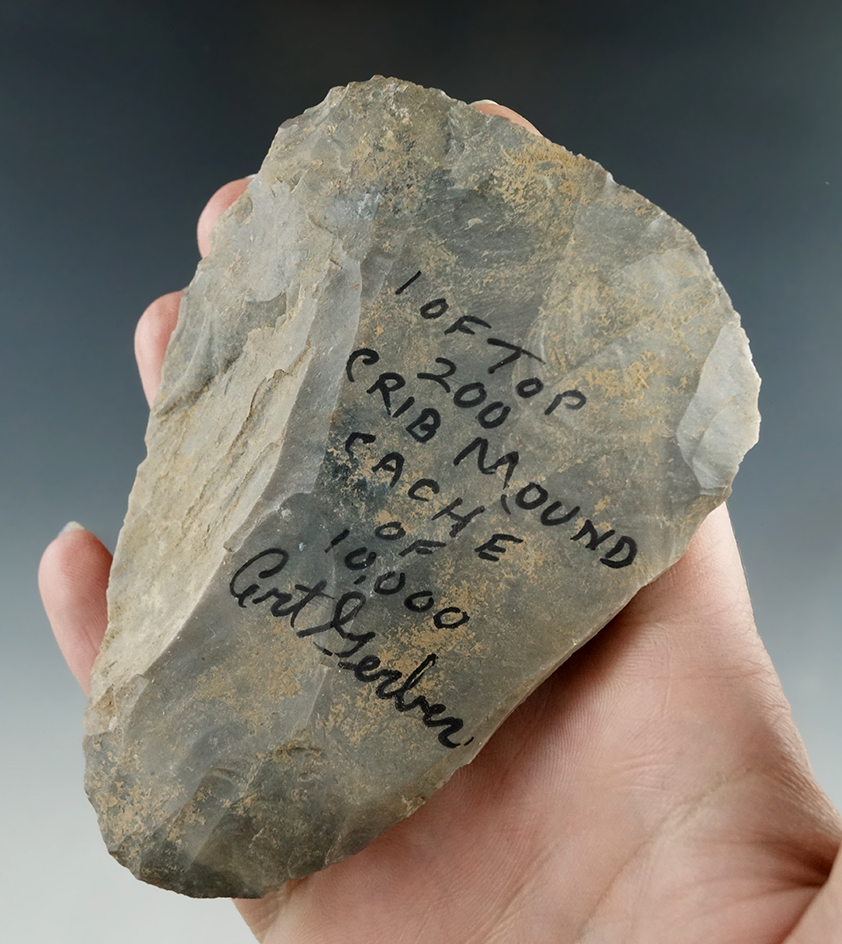 1 OF TOP
200
CRIB MOUND
CACHE
OF
10,000
Art Gerber